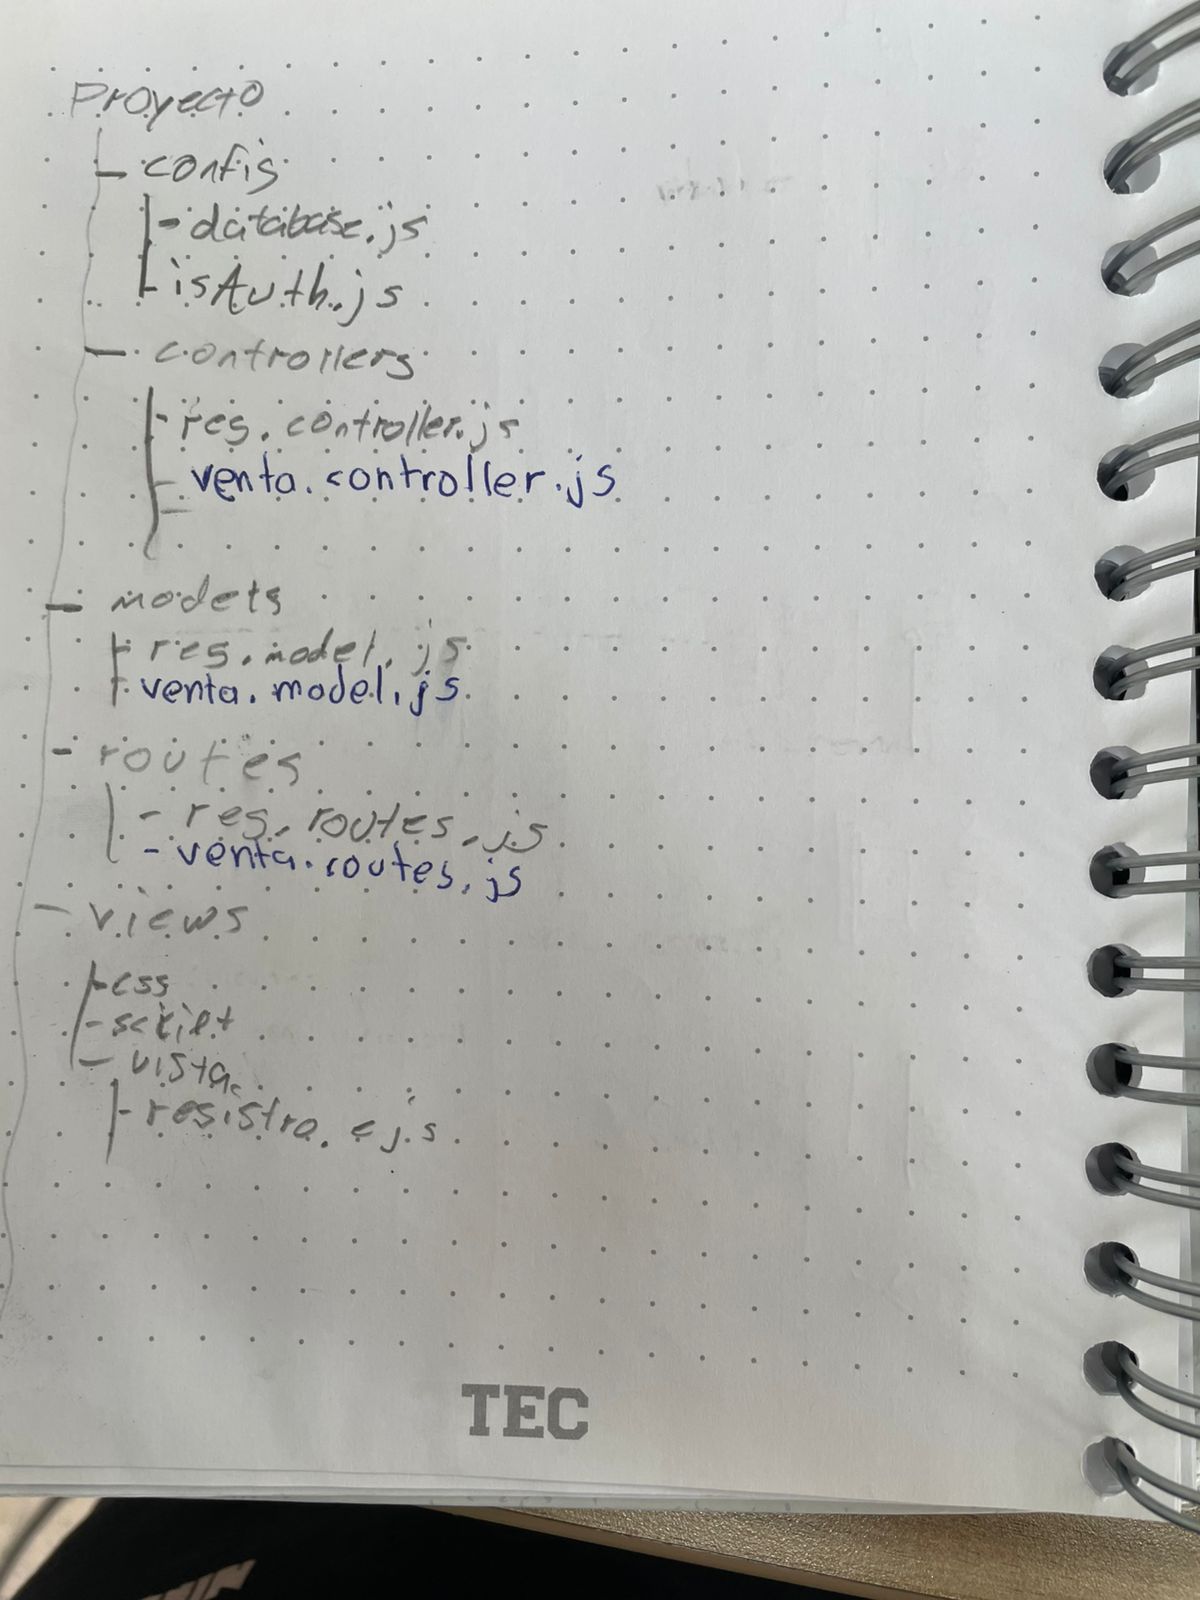 Proyecto
- config
- database.js
- isAuth.js
- controllers
- res.controller.js
- venta.controller.js
-
- models
- res.model.js
- venta.model.js
- routes
- res.routes.js
- venta.routes.js
- views
- css
- script
- vista
- registro.ejs
TEC